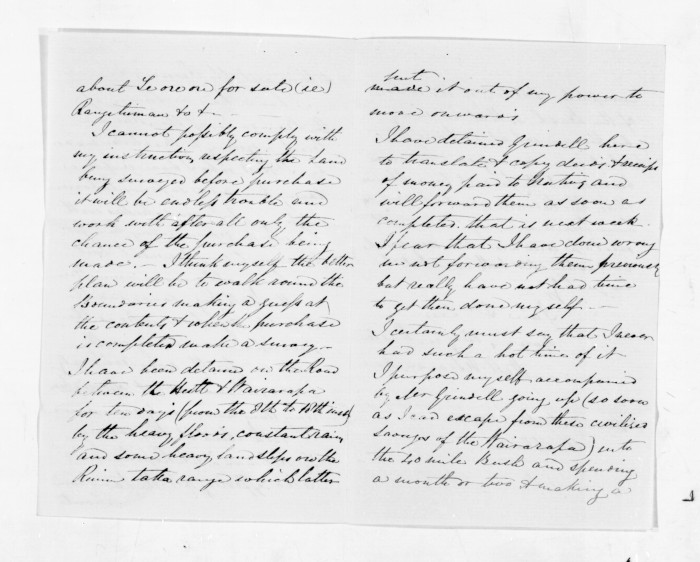 about Te ore ore for sale (ie)
Rangitumau & &
I cannot possibly comply with
my instruction respecting the land
being surveyed before purchase
it will be endless trouble and
work with after all only the
chance of the purchase being
made. - I think myself the better
plan will be to walk around the
Boundaries making a guess at
the contents & when the purchase
is completed make a survey -
I have been detained on the Road
between the Hutt & Wairarapa
for ten days (from the 8th to 18th inst)
by the heavy floods, constant rain
and some heavy land slips on the
Rimutaka range which latter
put
made it out of my power to
move onwards
I have detained Grindell here
to translate & copy deeds & receipts
of money paid to Natives and
will forward them as soon as
completed that is next week.
I fear that I have done wrong
in not forwarding them previously
but really have not had time
to get them done myself -
I certainly must say that I never
had such a hot time of it
I purpose myself accompanied
by Mr Grindell going up (so soon
as I can escape from these civilized
savages of the Wairarapa) into
the 40 mile Bush and spending
a month or two & making a